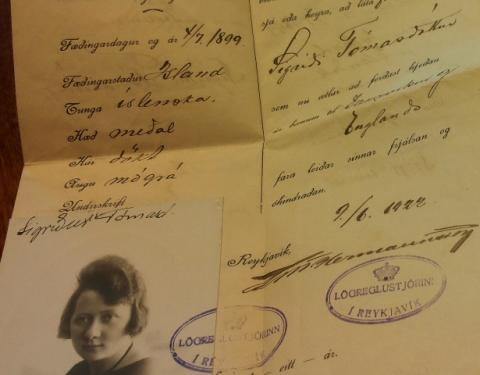 Fæðingardagur og ár 4/7. 1899.
Fæðingarstaður Ísland
Tunga íslenska.
Hæð meðal
Hár dökt
Augu mógrá
Undirskrift
Sigríður Tómasd.
LÖGREGLUSTJÓRINN
Í REYKJAVÍK
sjá eða heyra, að láta
Sigríði Tómasdóttur
sem nú ætlar að ferðast héðan
til Danmerkur og
Englands
fara leiðar sinnar frjálsan og
óhindraðan.
9/6. 1922
Reykjavík,
LÖGREGLUSTJÓRINN
Í REYKJAVÍK
eitt — ár.